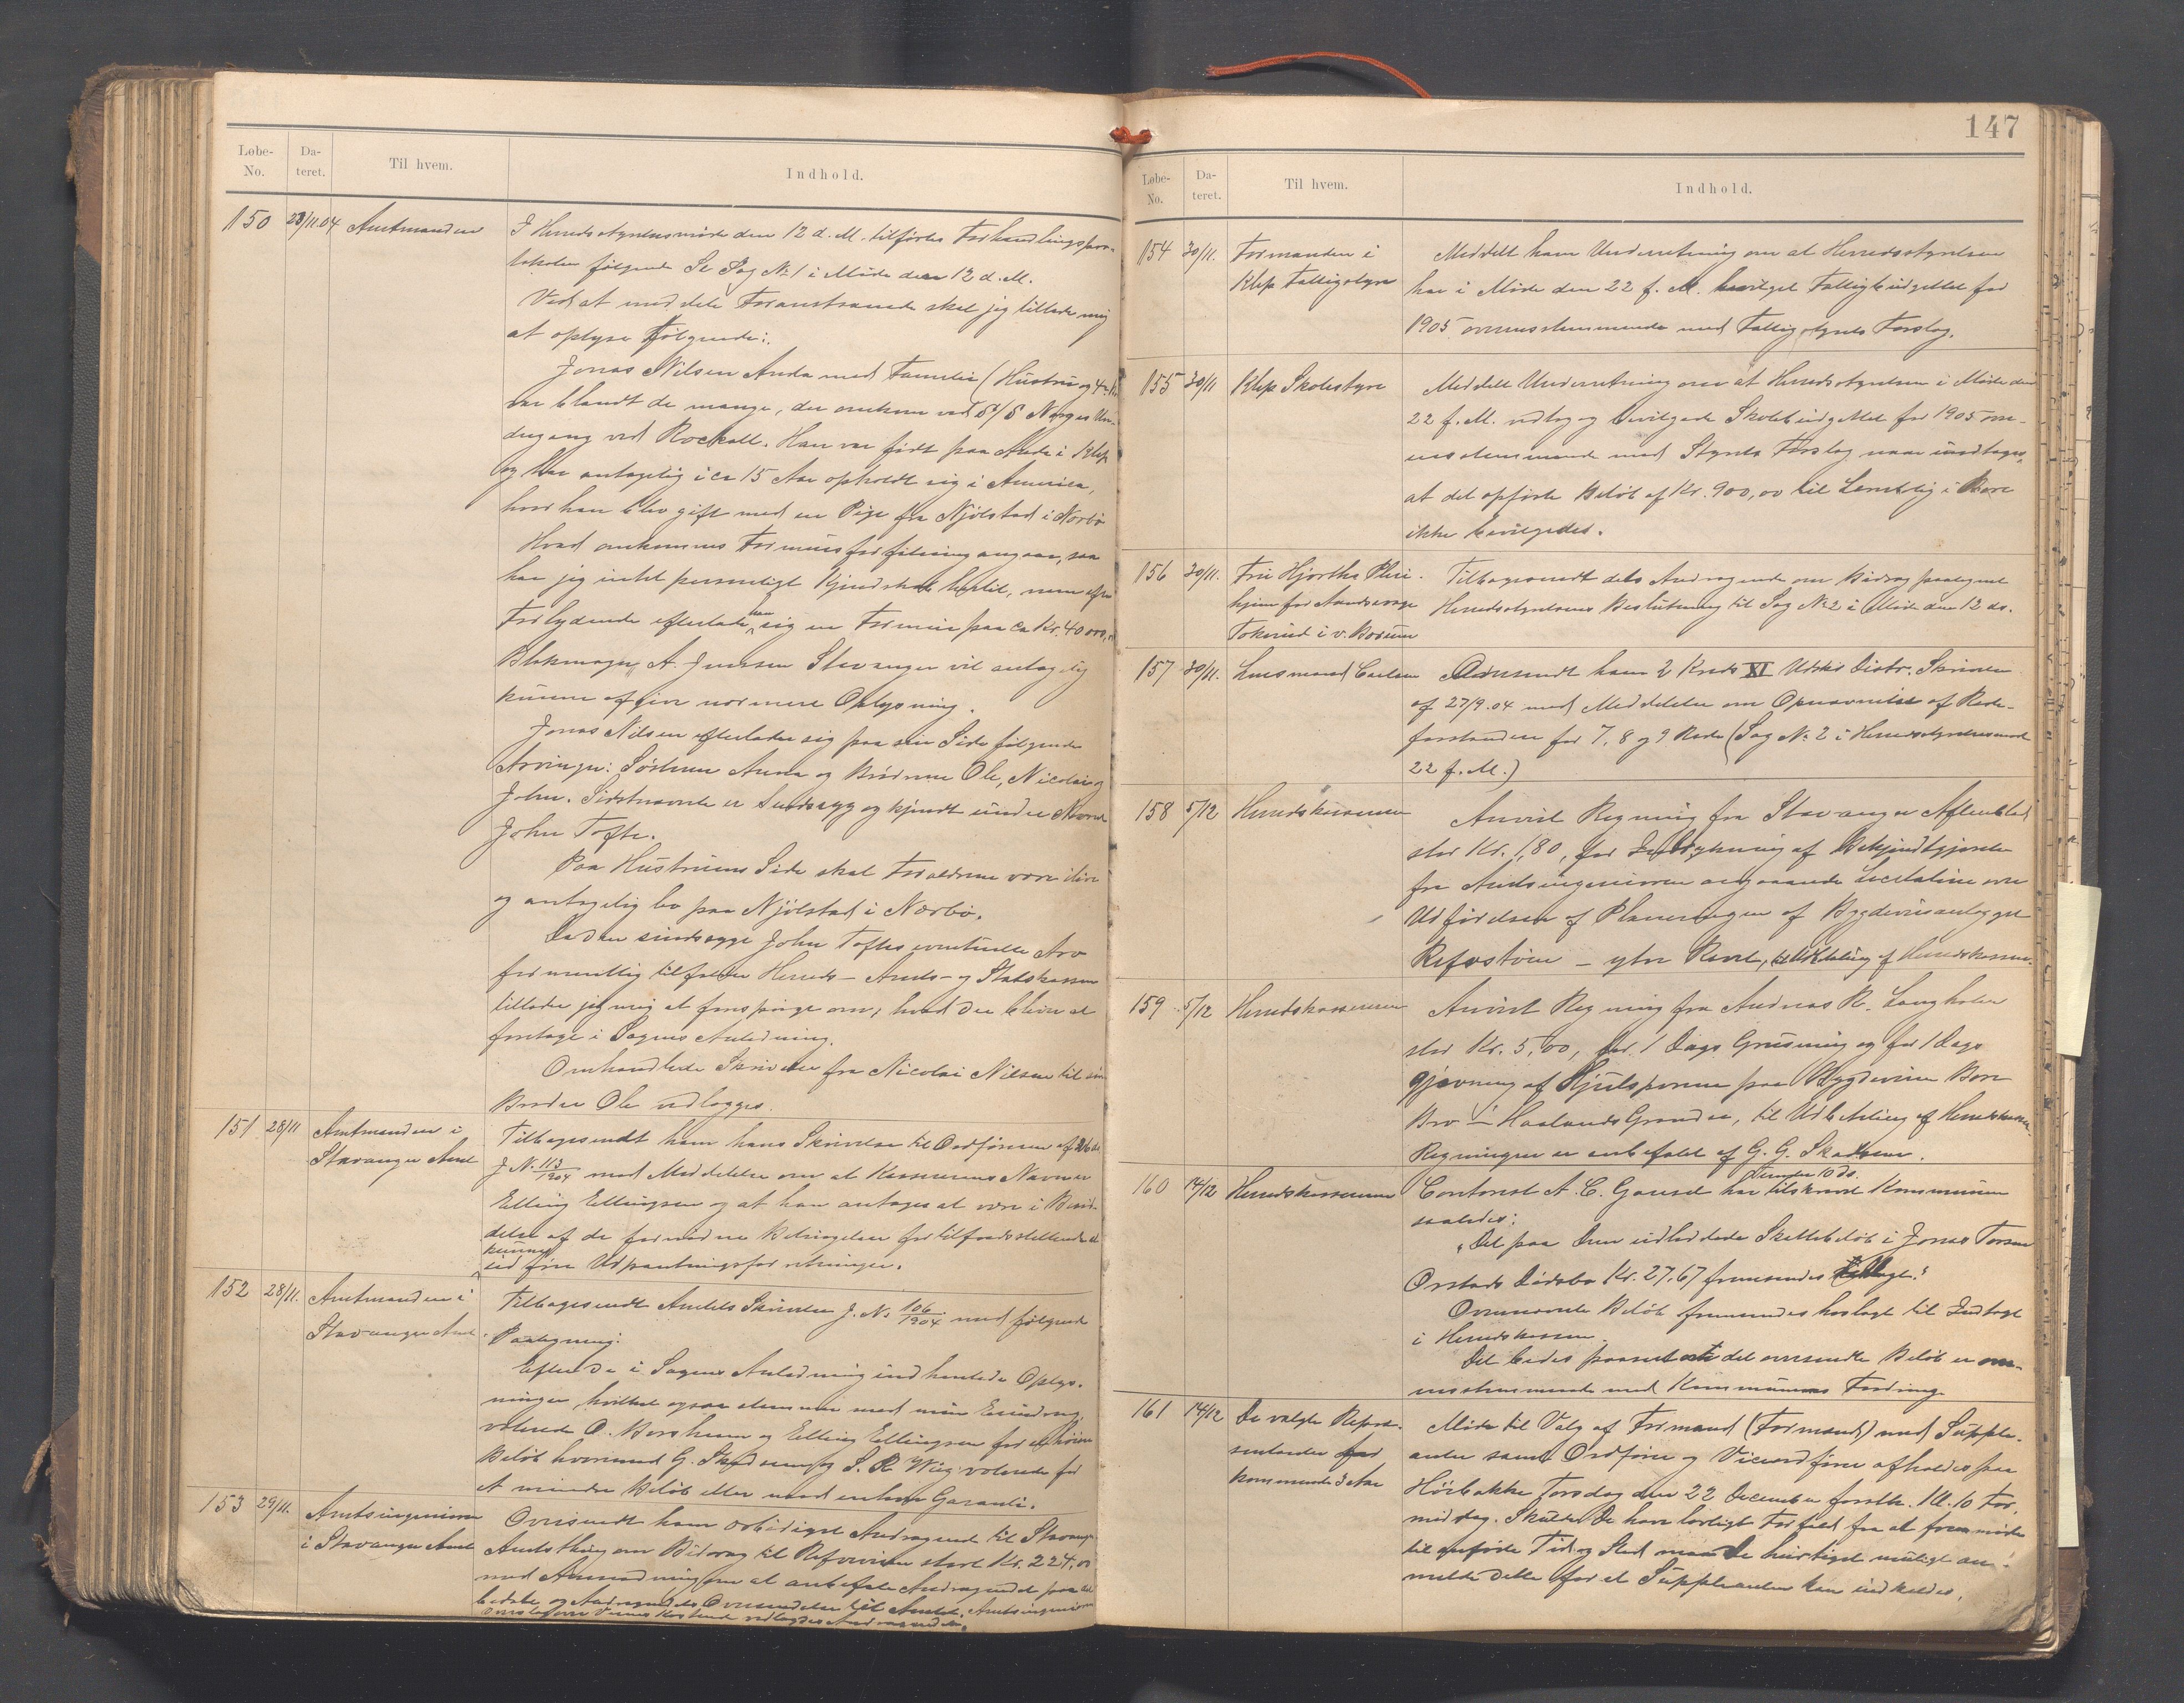 Løbe-No. Da-teret. Til hvem. Indhold.
150 28/11.04 Amtmanden I Herredsstyrelsesmøde den 12 d. M. tilførtes Forhandlingspro-
tokolen følgende Se Sag No 1 i Møde den 12 d. M.
Ved at meddele Foranstaaende skal jeg tillade mig
at oplyse Følgende:
Jonas Nilsen Anda med Familie (Hustru og 4
var blandt de mange, der omkom ved S/S Norges Un-
dergang ved Rockall. Han var født paa Anda i Klep
og har antagelig i ca 15 Aar opholdt sig i Amerika,
hvor han blev gift med en Pige fra Njölstad i Nærbø
Hvad omkomnes Formuesforfatning angaar, saa
har jeg intet personligt Kjendskab hertil, men efter
Forlydende efterlader han sig en Formue paa ca Kr. 40 000,
A. Jensen Stavanger vil antagelig
kunne afgive nærmere Oplysning.
Jonas Nilsen efterlader sig paa sin Side følgende
Arvinger: Søstrene Anna og Brødrene Ole, Nicolai og
John. Sidstnævnte er Sindssyg og kjendt under Navnet
John Tofte.
Paa Hustruens Side skal Forældrene være ilive
og antagelig bo paa Njölstad i Nærbø.
Da den sindssyge John Toftes eventuelle Arv
formentlig tilfalder Herreds- Amts- og Statskassen
tillader jeg mig at forespørge om, hvad der bliver at
foretage i Sagens Anledning.
Omhandlede Skrivelse fra Nicolai Nilsen til sin
Broder Ole vedlægges.
151 28/11 Amtmanden i Stavanger Amt Tilbagesendt ham hans Skrivelse til Ordføreren af 26
J. N. 113/1904 med Meddelelse om at Kassererens Navn er
Elling Ellingsen og at han antages at være i Besid-
delse af de fornødne Betingelser for tilfredsstillende at
kunne udføre Udpantningsforretninger.
152 28/11. Amtmanden i Stavanger Amt. Tilbagesendt Amtets Skrivelse J. No 106/1904 med følgende
Paategning:
Efter de i Sagens Anledning indhentede Oplys-
ninger, hvilket ogsaa stemmer med min Erindring,
voterede O. Borsheim og Elling Ellingsen for et høiere
Beløb hvorimod G. Skadsem og S. R. Wiig voterede for
et mindre Beløb eller mod enhver Garanti.
153 29/11. Amtsingeniøren i Stavanger Amt Oversendt ham ærbødigst Andragende til Stavanger
Amtsthing om Bidrag til Refveien stort Kr. 224,00
med Anmodning om at anbefale Andragendet paa
bedste og Andragendets Oversendelse til Amtet. Amtsingeniørens
147
Løbe-No. Da-teret. Til hvem. Indhold.
154 30/11. Formanden i Klep Fattigstyre Meddelt ham Underretning om at Herredsstyrelsen
har i Møde den 22 f. M. bevilget Fattigbudgettet for
1905 overensstemmende med Fattigstyrets Forslag.
155 30/11 Klep Skolestyre Meddelt Underretning om at Herredsstyrelsen i Møde den
22 f. M. vedtog og bevilgede Skolebudgettet for 1905 over-
ensstemmende med Styrets Forslag naar undtages,
at det opførte Beløb af Kr. 900,00 til i Bore
ikke bevilgedes.
156 30/11. Fru Hjorths Pleie-
hjem for Aandssvage Tokerud i v. Bærum Tilbagesendt dets Andragende om Bidrag paategnet
Herredsstyrelsens Beslutning til Sag No 2 i Møde den 12 ds.
157 30/11. Lensmand Carlsen Oversendt ham 2 Kreds XI Udskr. Distr. Skrivelse
af 27/9.04 med Meddelelse om Opnævnelse af Rode-
forstandere for 7, 8 og 9 Rode (Sag No 2 i Herredsstyrelsesmøde
22 f. M.)
158 5/12 Herredskassereren Anvist Regning fra Stavanger Aftenblad
stor Kr. 1,80, for Indrykning af Bekjendtgjørelse
fra Amtsingeniøren angaaende Licitation over
Udførelsen af Planeringen af Bygdeveisanlægget
Refstöen – ytre Revet, til Udbetaling af Herredskassen.
159 5/12 Herredskassereren Anvist Regning fra Andreas R. Langholen
stor Kr. 5,00, for 1 Dags Grusning og for 1 Dags
Gjævning af Hjulsporene paa Bygdeveien Bore
Bro – Haalands Grændse, til Udbetaling af Herredskassen.
Regningen er anbefalet af G. G. Skadsem.
160 14/12 Herredskassereren Contorist A. C. Gausel har under 10 ds. tilskrevet Kommunen
saaledes:
"Det paa Dem udloddede Skattebeløb i Jonas Torsen
Orstads Dødsbo Kr. 27.67 fremsendes
Ovennævnte Beløb fremsendes hoslagt til Indtægt
i Herredskassen.
Det bedes paaseet at det oversendte Beløb er over-
ensstemmende med Kommunens Fordring.
161 14/12 De valgte Repræ-
sentanter for kommende 3 Aar Møde til Valg af Formænd (Formand) med Supple-
anter samt Ordfører og Viceordfører afholdes paa
Hörbakke Torsdag den 22 December førstk. Kl. 10 For-
middag. Skulde De have lovligt Forfald fra at fremmøde
til anførte Tid og Sted maa De hurtigst muligt an-
melde dette for at Suppleanten kan indkaldes.